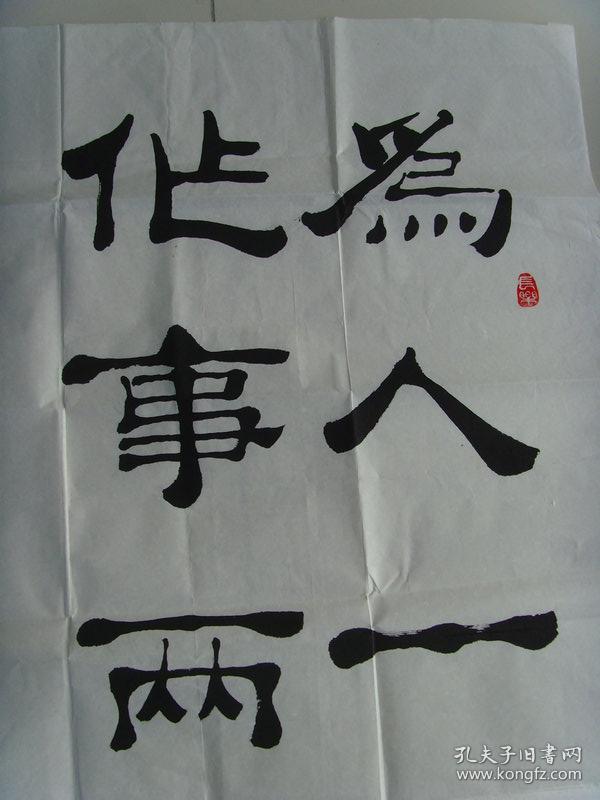 為人一
作事两
長樂
孔夫子旧書网
www.kongfz.com